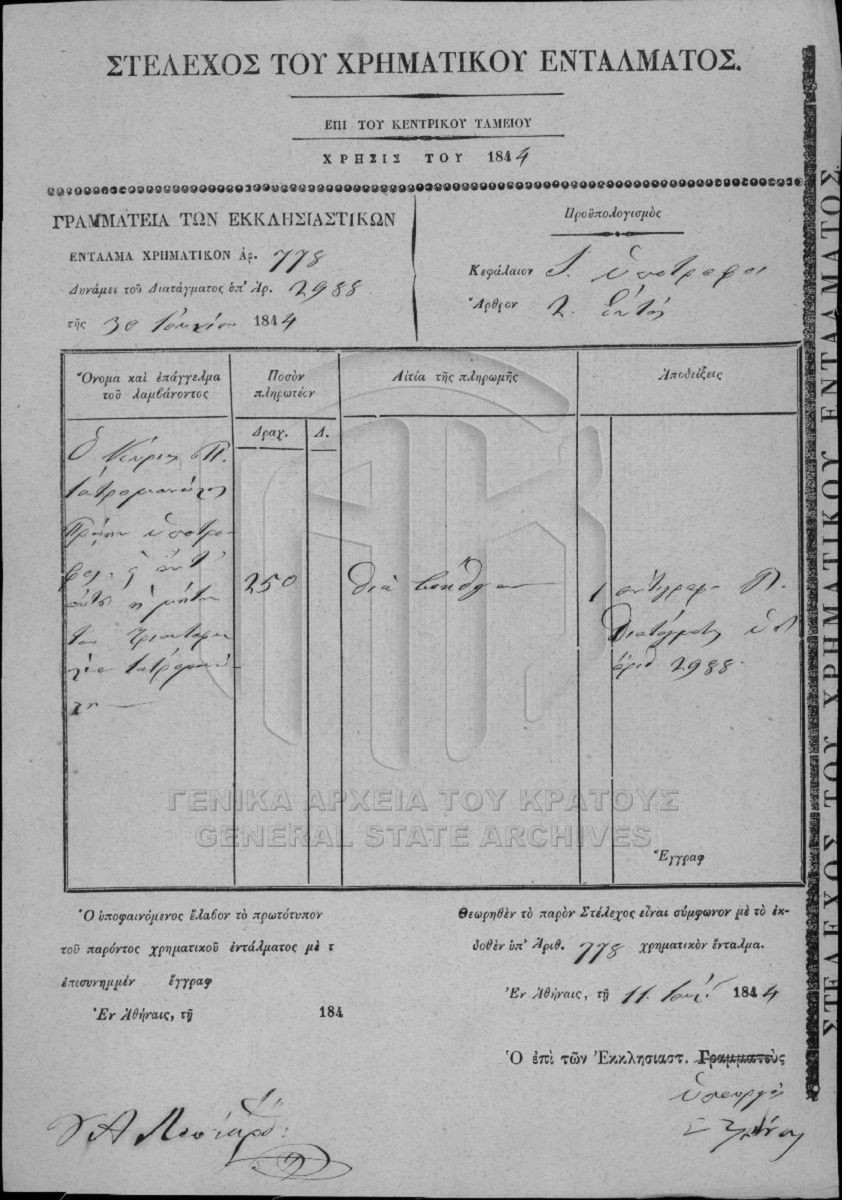 ΣΤΕΛΕΧΟΣ ΤΟΥ ΧΡΗΜΑΤΙΚΟΥ ΕΝΤΑΛΜΑΤΟΣ.
ΕΠΙ ΤΟΥ ΚΕΝΤΡΙΚΟΥ ΤΑΜΕΙΟΥ
ΧΡΗΣΙΣ ΤΟΥ 1844
ΓΡΑΜΜΑΤΕΙΑ ΤΩΝ ΕΚΚΛΗΣΙΑΣΤΙΚΩΝ
ΕΝΤΑΛΜΑ ΧΡΗΜΑΤΙΚΟΝ Ἀρ. 778
Δυνάμει τοῦ Διατάγματος ὑπ' Ἀρ. 2988
τῆς 30 Ἰουνίου 1844
Προϋπολογισμὸς
Κεφάλαιον ὑπότροφοι
Ἄρθρον 2.
Ὄνομα καὶ ἐπάγγελμα
τοῦ λαμβάνοντος
Ποσὸν
πληρωτέον
Αἰτία τῆς πληρωμῆς
Ἀποδείξεις
Δραχ. Λ.
Ὁ Κύριος Π.
Ἰατρομανώλης
Πρώην ὑπότρο-
φος
250
διὰ βοήθειαν
1 ἀντίγραφ. Π.
Διατάγματος ὑπ'
ἀριθ 2988.
Ἔγγραφ
Ὁ ὑποφαινόμενος ἔλαβον τὸ πρωτότυπον
τοῦ παρόντος χρηματικοῦ ἐντάλματος μὲ τ
ἐπισυνημμέν ἔγγραφ
Ἐν Ἀθήναις, τῇ 184
Θεωρηθὲν τὸ παρὸν Στέλεχος εἶναι σύμφωνον μὲ τὸ ἐκ-
δοθὲν ὑπ' Ἀριθ. 778 χρηματικὸν ἔνταλμα.
Ἐν Ἀθήναις, τῇ 11. Ἰουλ. 1844
Ὁ ἐπὶ τῶν Ἐκκλησιαστ. Γραμματεὺς
ὑπουργὸς
ΣΤΕΛΕΧΟΣ ΤΟΥ ΧΡΗΜΑΤΙΚΟΥ ΕΝΤΑΛΜΑΤΟΣ.
ΓΕΝΙΚΑ ΑΡΧΕΙΑ ΤΟΥ ΚΡΑΤΟΥΣ
GENERAL STATE ARCHIVES